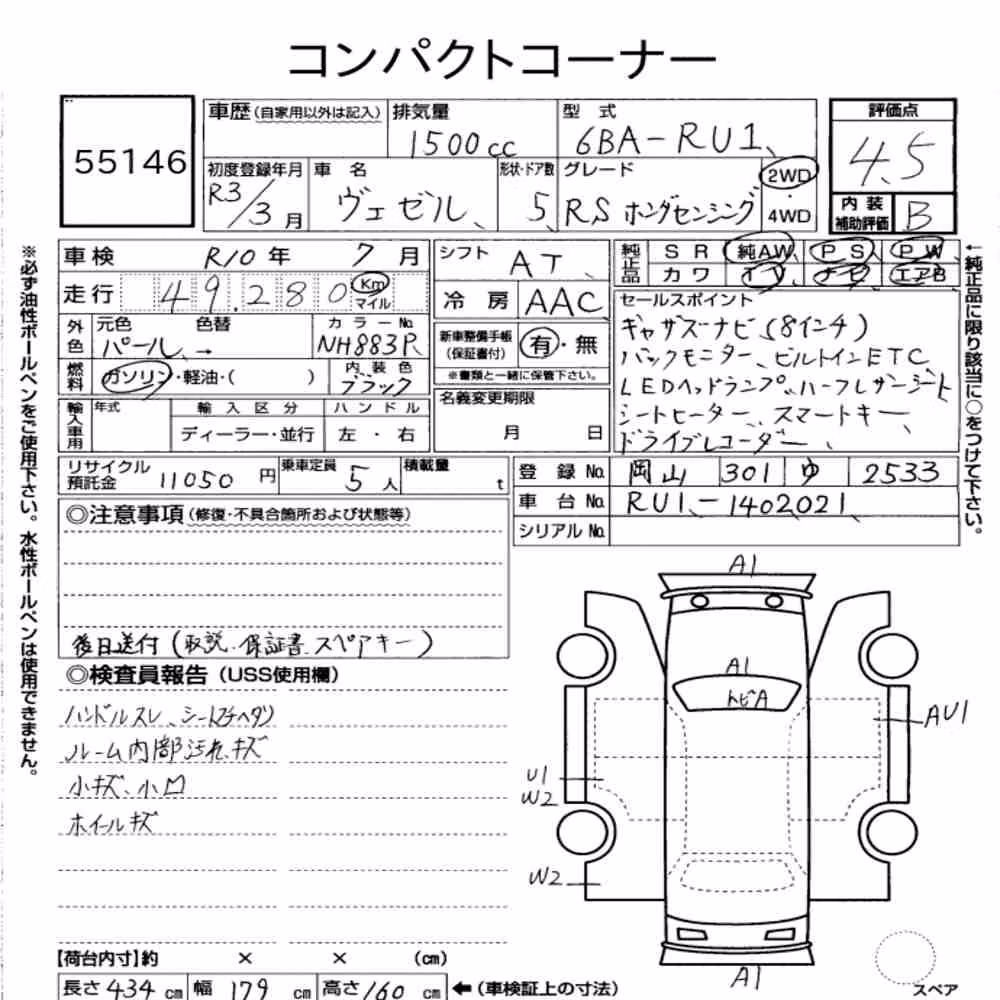 コンパクトコーナー
55146
車歴(自家用以外は記入)
排気量
1500cc
型 式
6BA-RU1
評価点
4.5
初度登録年月
R3/3月
車 名
ヴェゼル
形状・ドア数
5
グレード
RS ホンダセンシング
2WD
・
4WD
内 装
補助評価
B
車検 R10年 7月
シフト AT
純正品
S R 純AW P S P W
カ ワ T V ナビ エアB
走行 49.280 Km
マイル
冷 房 AAC
セールスポイント
ギャザズナビ(8インチ)
バックモニター、ビルトインETC
LEDヘッドランプ、ハーフレザーシート
シートヒーター、スマートキー、
ドライブレコーダー、
外色
元色 色替
パール →
カラーNo.
NH883P
新車整備手帳
(保証書付)
有・無
※書類と一緒に保管下さい。
燃料
ガソリン・軽油・( )
内 装 色
ブラック
名義変更期限
月 日
輸入車用
年式
輸 入 区 分
ディーラー・並行
ハ ン ド ル
左 ・ 右
リサイクル
預託金
11050円
乗車定員
5人
積載量
t
登 録 No. 岡山 301 ゆ 2533
車 台 No. RU1-1402021
シリアル No.
◎注意事項(修復・不具合箇所および状態等)
後日送付(取説、保証書 スペアキー)
◎検査員報告(USS使用欄)
ハンドルスレ、シートスチヘタリ
ルーム内部汚れ、キズ
小キズ、小凹
ホイールキズ
A1
A1
トビA
AU1
U1
W2
W2
A1
【荷台内寸】約 × × (cm)
長さ 434 cm 幅 179 cm 高さ 160 cm ←(車検証上の寸法)
スペア
※必ず油性ボールペンをご使用下さい。水性ボールペンは使用できません。
←純正品に限り該当に○をつけて下さい。